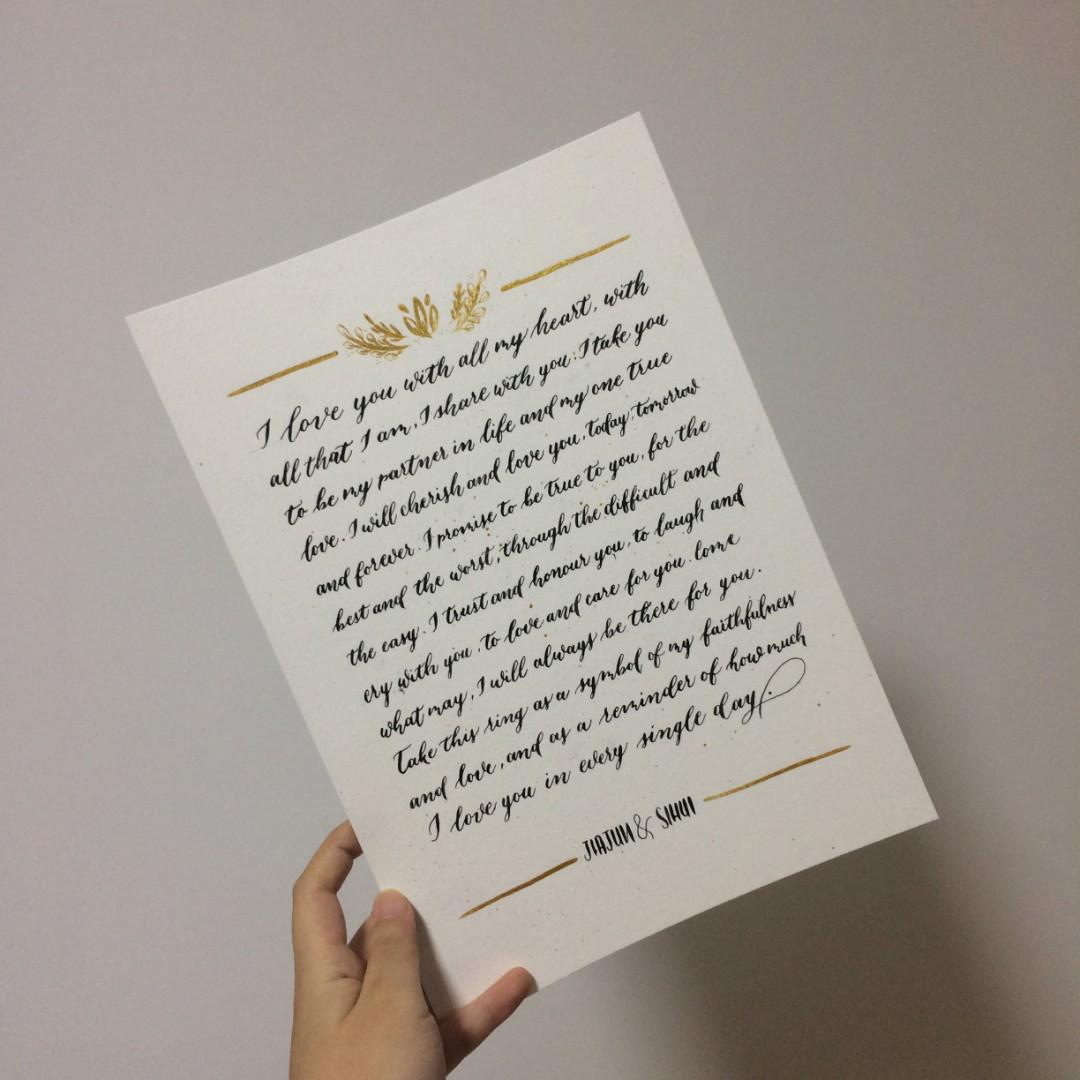 I love you with all my heart, with
all that I am, I share with you. I take you
to be my partner in life and my one true
love. I will cherish and love you, today, tomorrow
and forever. I promise to be true to you, for the
best and the worst, through the difficult and
the easy. I trust and honour you, to laugh and
cry with you, to love and care for you. Come
what may, I will always be there for you.
Take this ring as a symbol of my faithfulness
and love, and as a reminder of how much
I love you in every single day.
JIAJUN & SIHUI